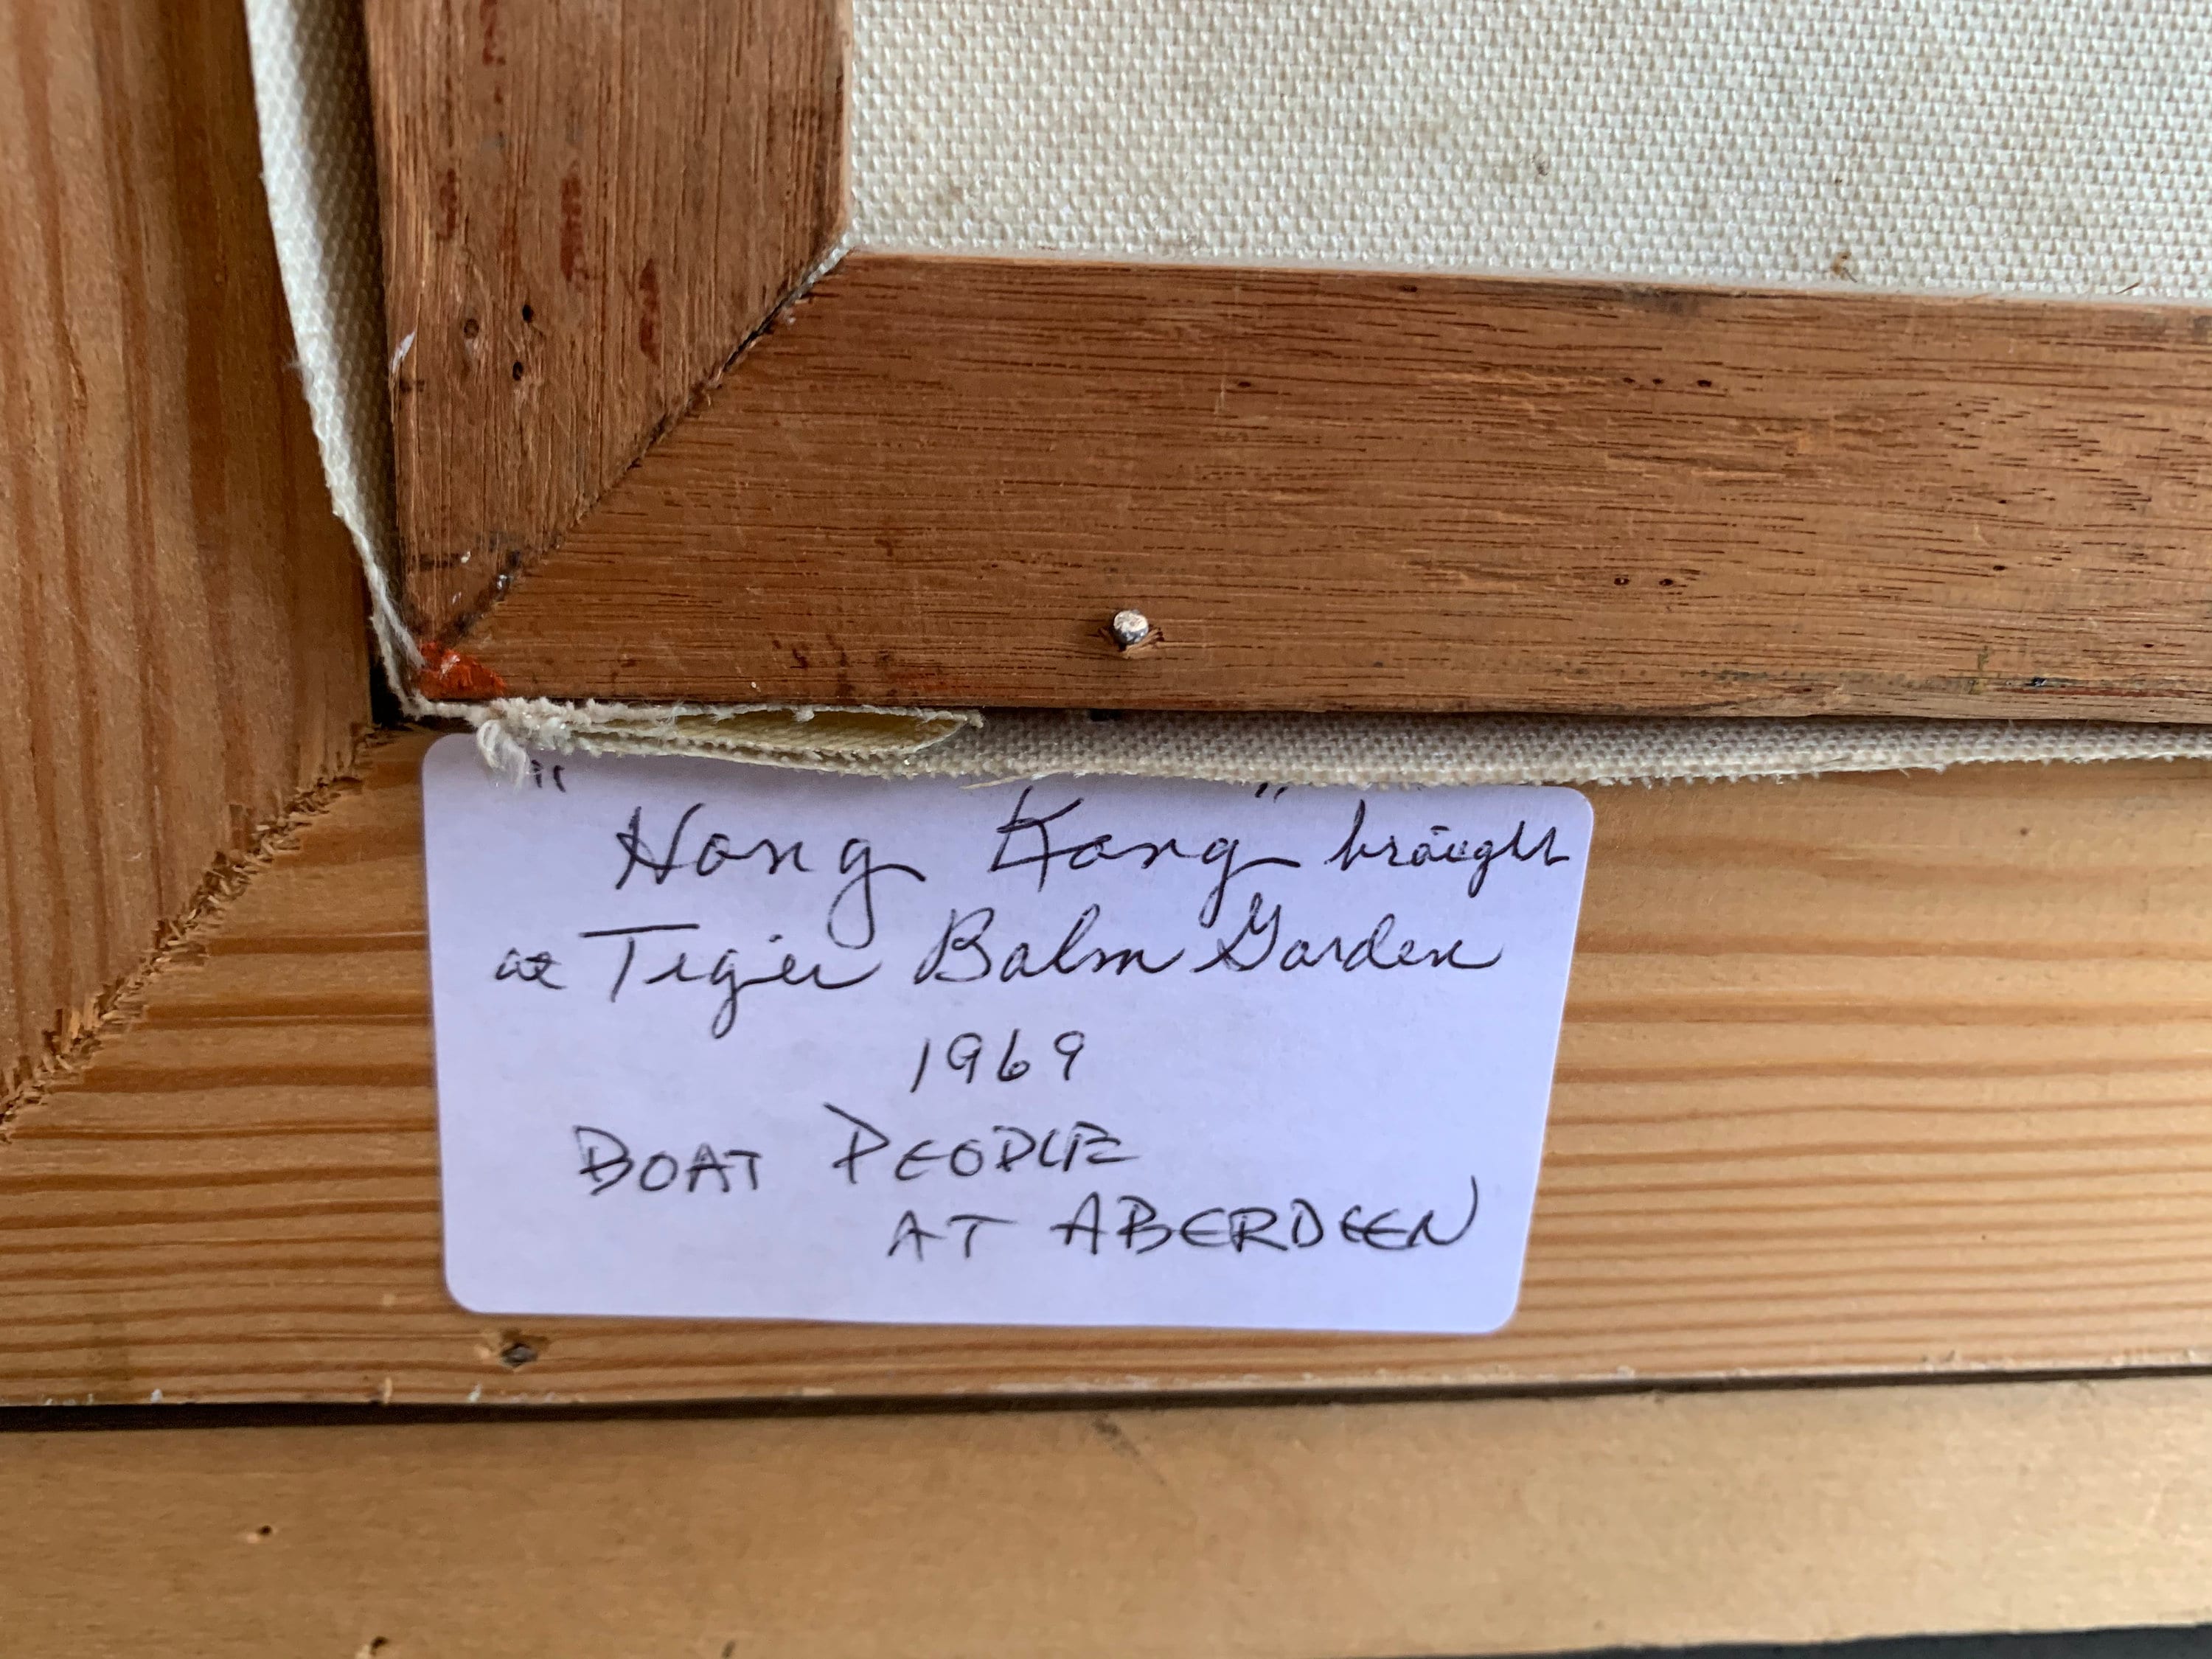 "Hong Kong" braught
at Tiger Balm Garden
1969
BOAT PEOPLE
AT ABERDEEN